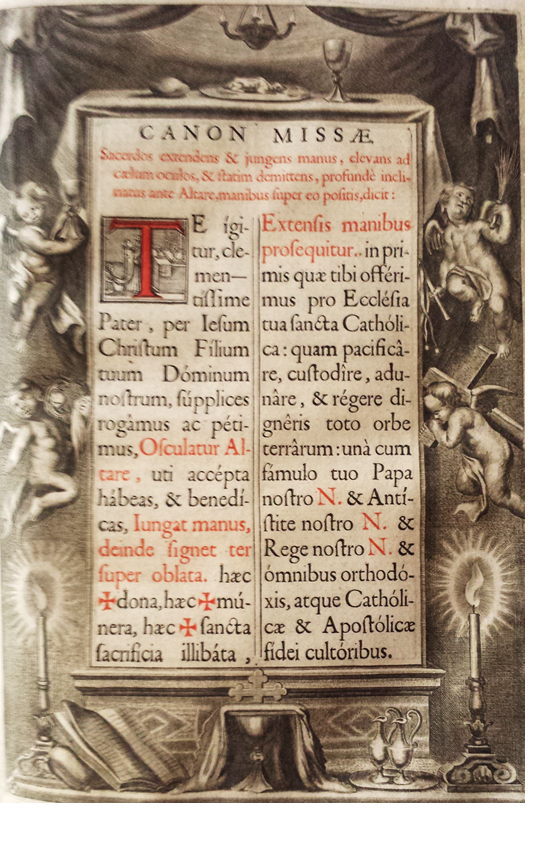 CANON MISSÆ.
Sacerdos extendens & jungens manus, elevans ad
cælum oculos, & ſtatim demittens, profundè incli-
natus ante Altare, manibus ſuper eo poſitis, dicit:
TE ígi-
tur, cle-
men—
tiſſime
Pater, per Ieſum
Chriſtum Fílium
tuum Dóminum
noſtrum, ſúpplices
rogámus ac péti-
mus, Oſculatur Al-
tare, uti accépta
hábeas, & benedí-
cas, Iungat manus,
deinde ſignet ter
ſuper oblata. hæc
✠dona, hæc✠mú-
nera, hæc ✠ ſancta
ſacrificia illibáta,
Extenſis manibus
proſequitur.. in pri-
mis quæ tibi offéri-
mus pro Eccléſia
tua ſancta Cathóli-
ca: quam pacificâ-
re, cuſtodìre, adu-
nâre, & régere di-
gnêris toto orbe
terrârum: unà cum
fámulo tuo Papa
noſtro N. & Antí-
ſtite noſtro N. &
Rege noſtro N. &
ómnibus orthodó-
xis, atque Cathóli-
cæ & Apoſtólicæ
fidei cultóribus.